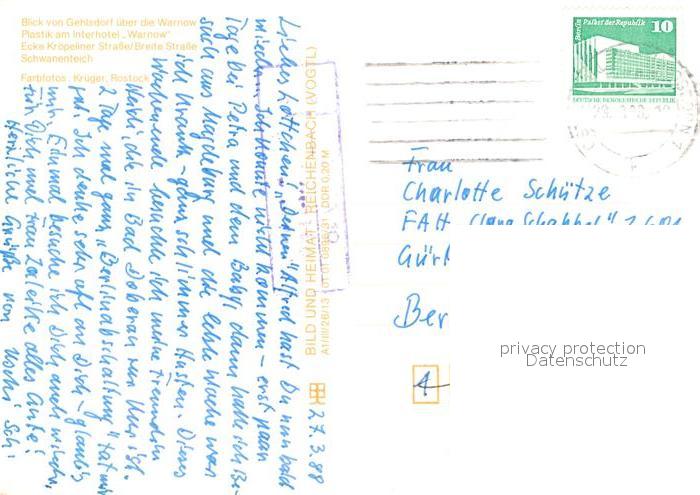 Blick von Gehlsdorf über die Warnow
Plastik am Interhotel „Warnow"
Ecke Kröpeliner Straße/Breite Straße
Schwanenteich
Farbfotos: Krüger, Rostock
BILD UND HEIMAT REICHENBACH (VOGTL)
A1/III/26/13 01 01 0896/81 DDR 0,20 M
27. 3. 88
Liebes Lottchen, „Deinen" Alfred hast Du nun bald
wieder. Ich konnte nicht kommen – erst paar
Tage bei Petra und dem Baby, dann hatte ich Be-
such aus Magdeburg und die letzte Woche war
ich krank – ganz schlimmer Husten. Dieses
Wochenende besuche ich meine Freundin
Heidi, die in Bad Doberan zur Kur ist.
2 Tage mal ganz „Berlinabschaltung" tut mir
gut. Ich denke sehr oft an Dich – glaub's
mir. Einmal besuche ich Dich auch wieder.
Für Dich und Frau alles Gute!
Herzliche Grüße von
Berlin Palast der Republik
10
DEUTSCHE DEMOKRATISCHE REPUBLIK
Frau
Charlotte Schütze
FAH
Gürt
Ber
privacy protection
Datenschutz